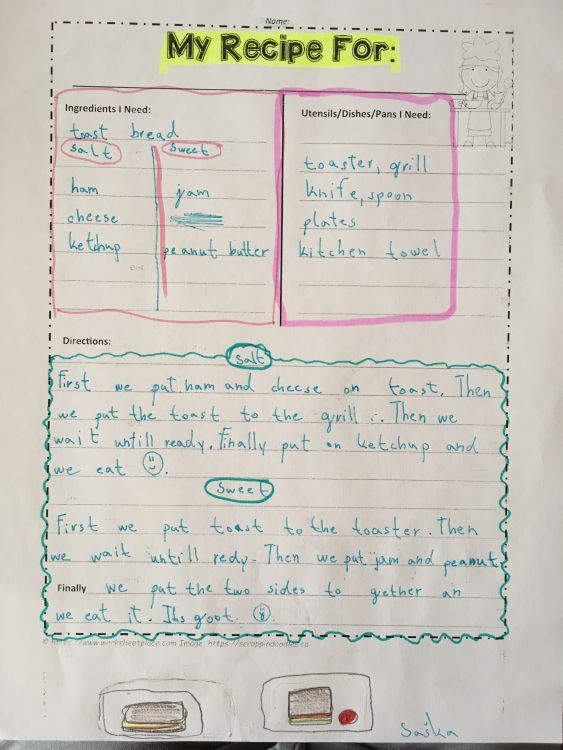 Name:
My Recipe For:
Ingredients I Need:
toast bread
salt
sweet
ham
jam
cheese
ketchup
peanut butter
Utensils/Dishes/Pans I Need:
toaster, grill
knife, spoon
plates
kitchen towel
Directions:
salt
First we put ham and cheese on toast. Then
we put the toast to the grill. Then we
wait untill ready. Finally put on ketchup and
we eat
sweet
First we put toast to the toaster. Then
we wait untill redy. Then we put jam and peanut
Finally we put the two sides to gether an
we eat it. Its goot.
www.worksheetplace.com Image: https://scrappindoodles.ca
Saška